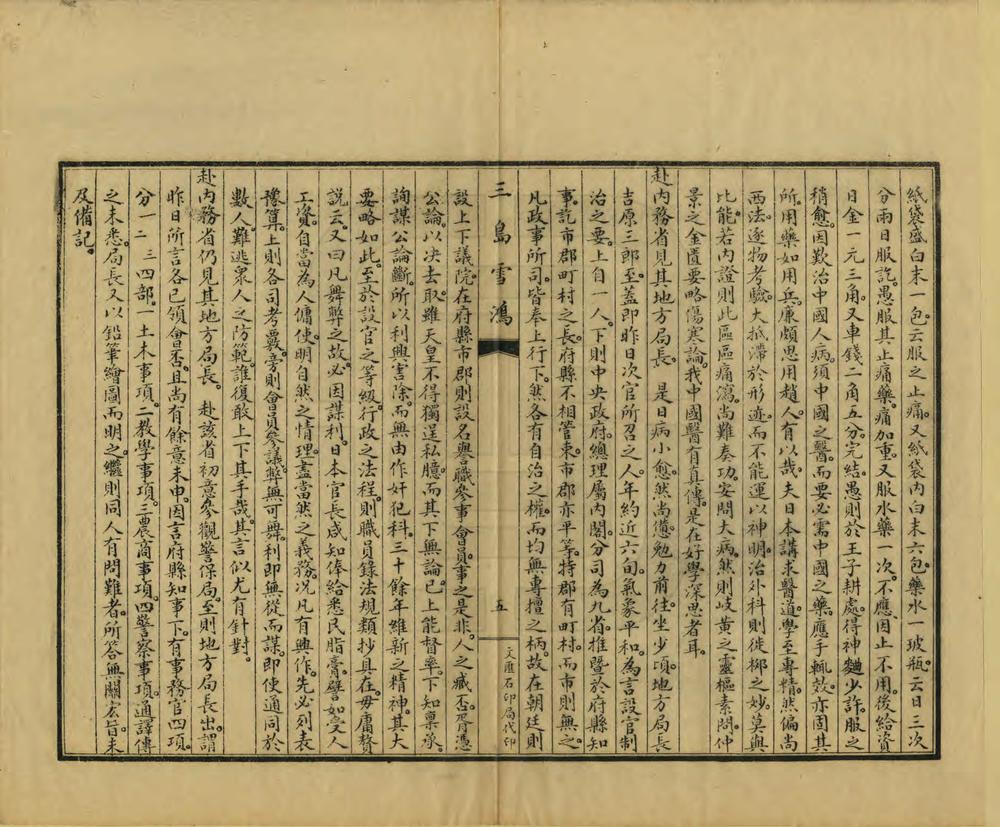 紙袋盛白末一包。云服之止痛。又紙袋内白末六包。藥水一玻瓶。云日三次
分兩日服訖。愚服其止痛藥痛加重。又服水藥一次。不應。因止不用。後給資
日金一元三角。又車錢二角五分。完結。愚則於王子耕處。得神麯少許。服之
稍愈。因歎治中國人病。須中國之醫。而要必需中國之藥。應手輒效。亦固其
所。用藥如用兵。廉頗思用趙人。有以哉。夫日本講求醫道。學至專精。然偏尚
西法。逐物考驗。大抵滯於形迹。而不能運以神明。治外科則徙柳之妙。莫與
比能。若內證則此區區痛瀉。尚難奏功。安問大病。然則岐黃之靈樞素問。仲
景之金匱要略傷寒論。我中國醫有真傳。是在好學深思者耳。
赴內務省見其地方局長。是日病小愈。然尚憊。勉力前往。坐少頃。地方局長
吉原三郎至。蓋即昨日次官所召之人。年約近六旬。氣象平和。為言設官制
治之要。上自一人。下則中央政府。總理屬內閣。分司為九省。推暨於府縣知
事。訖市郡町村之長。府縣不相管束。市郡亦平等。特郡有町村。而市則無之。
凡政事所司。皆奉上行下。然各有自治之權。而均無專擅之柄。故在朝廷則
三島雪鴻
五
文匯石印局代印
設上下議院。在府縣市郡則設名譽職參事會員。事之是非。人之臧否。胥憑
公論。以決去取。雖天皇不得獨逞私臆。而其下無論已。上能督率。下知稟承。
詢謀公論斷。所以利興害除。而無由作奸犯科。三十餘年維新之精神。其大
要略如此。至於設官之等級。行政之法程。則職員錄法規類抄具在。毋庸贅
說云。又曰凡舞弊之故。必因謀利。日本官長咸知俸給悉民脂膏。譬如受人
工資。自當為人傭使。明自然之情理。盡當然之義務。况凡有興作。先必列表
豫算。上則各司考覈。旁則會員參議。弊無可舞。利即無從而謀。即使通同於
數人。難逃眾人之防範。誰復敢上下其手哉。其言似尤有針對。
赴內務省仍見其地方局長。赴該省初意參觀警保局。至則地方局長出。謂
昨日所言各已領會否。且尚有餘意未申。因言府縣知事下。有事務官四項。
分一二三四部。一土木事項。二教學事項。三農商事項。四警察事項。通譯傳
之未悉。局長又以鉛筆繪圖而明之。繼則同人有問難者。所答無關宏旨。未
及備記。